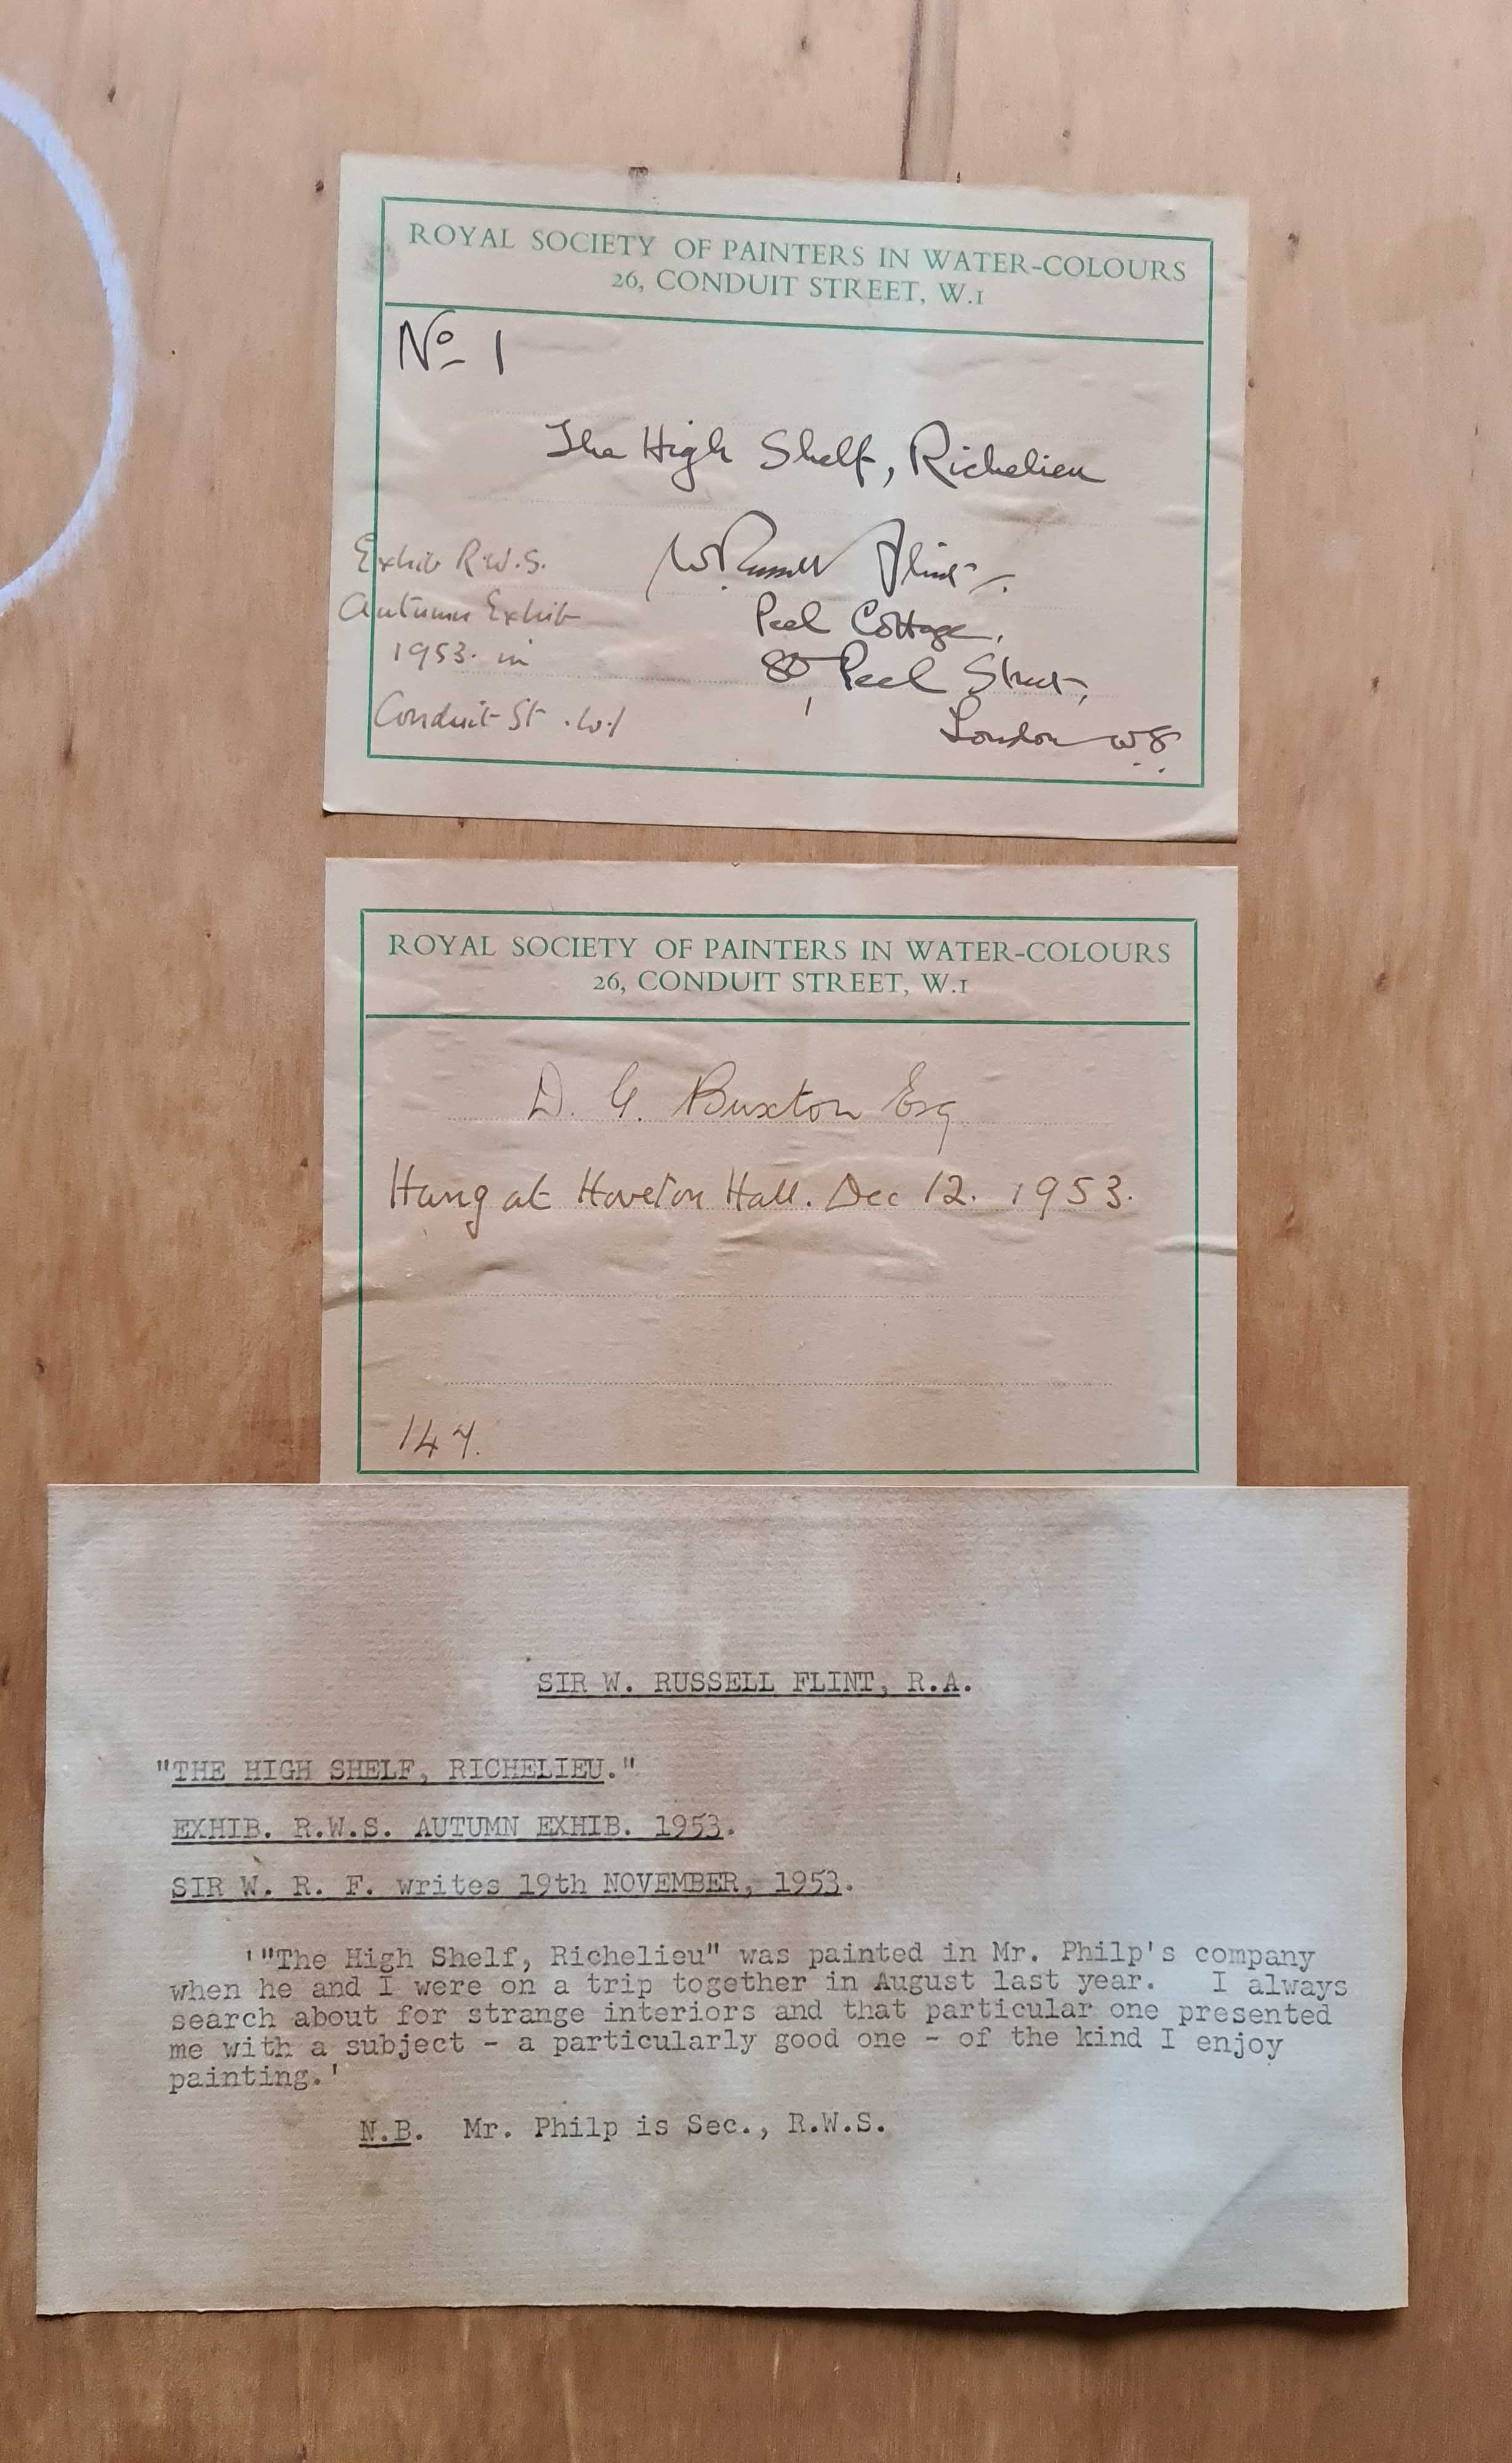 ROYAL SOCIETY OF PAINTERS IN WATER-COLOURS
26, CONDUIT STREET, W.1
No 1
The High Shelf, Richelieu
W Russell Flint
Peel Cottage,
80, Peel Street,
London W8
Exhib R.W.S.
Autumn Exhib
1953. in
Conduit St. W1
ROYAL SOCIETY OF PAINTERS IN WATER-COLOURS
26, CONDUIT STREET, W.1
D. G. Buxton Esq
Hung at Hoveton Hall. Dec 12. 1953.
SIR W. RUSSELL FLINT, R.A.
"THE HIGH SHELF, RICHELIEU."
EXHIB. R.W.S. AUTUMN EXHIB. 1953.
SIR W. R. F. writes 19th NOVEMBER, 1953.
'"The High Shelf, Richelieu" was painted in Mr. Philp's company
when he and I were on a trip together in August last year. I always
search about for strange interiors and that particular one presented
me with a subject - a particularly good one - of the kind I enjoy
painting.'
N.B. Mr. Philp is Sec., R.W.S.